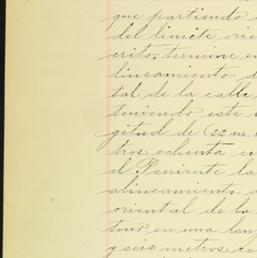 que partiendo
del limite orie
crito, termine en
lineamiento d
tal de la calle
teniendo este
gitud de (22 m.
tros ochenta ce
el Poniente la
alineamiento
oriental de la
tour en una lon
y seis metros